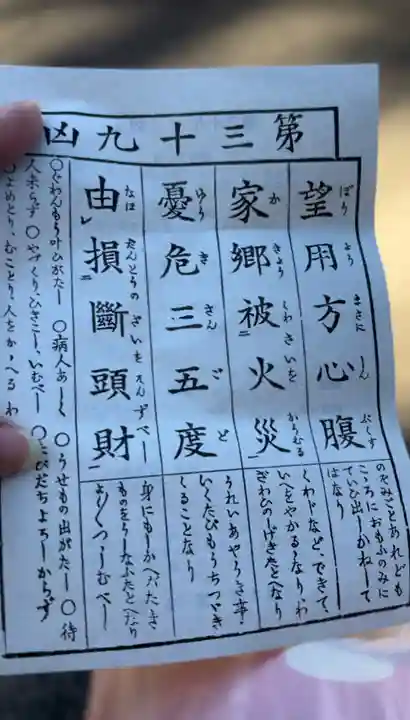 第三十九凶
望用方心腹
ぼう よう まさに しん ぷくす
のぞみごとあれども
こゝろにおもふのみに
ていひ出しかねて
はなり
家郷被火災
か きょう くわさいを かうむる
くわじなど、できて、
いへをやかるゝなり、わ
ざわひのしげきたとへなり
憂危三五度
ゆう き さん ご ど
うれいあやうき事、
いくたびもうちつゞき
くることなり
由損斷頭財
なほ だんとうの ざいを そんずべし
身にもかへがたき
ものをうしなふたとへなり
よく〱つゝしむべし
○ぐわんもう叶ひがたし ○病人あしく ○うせもの出がたし ○待
人来らず ○やづくりひきこし、いむべし ○たびだちよろしからず
○よめとり、むことり、人をかゝへる わ